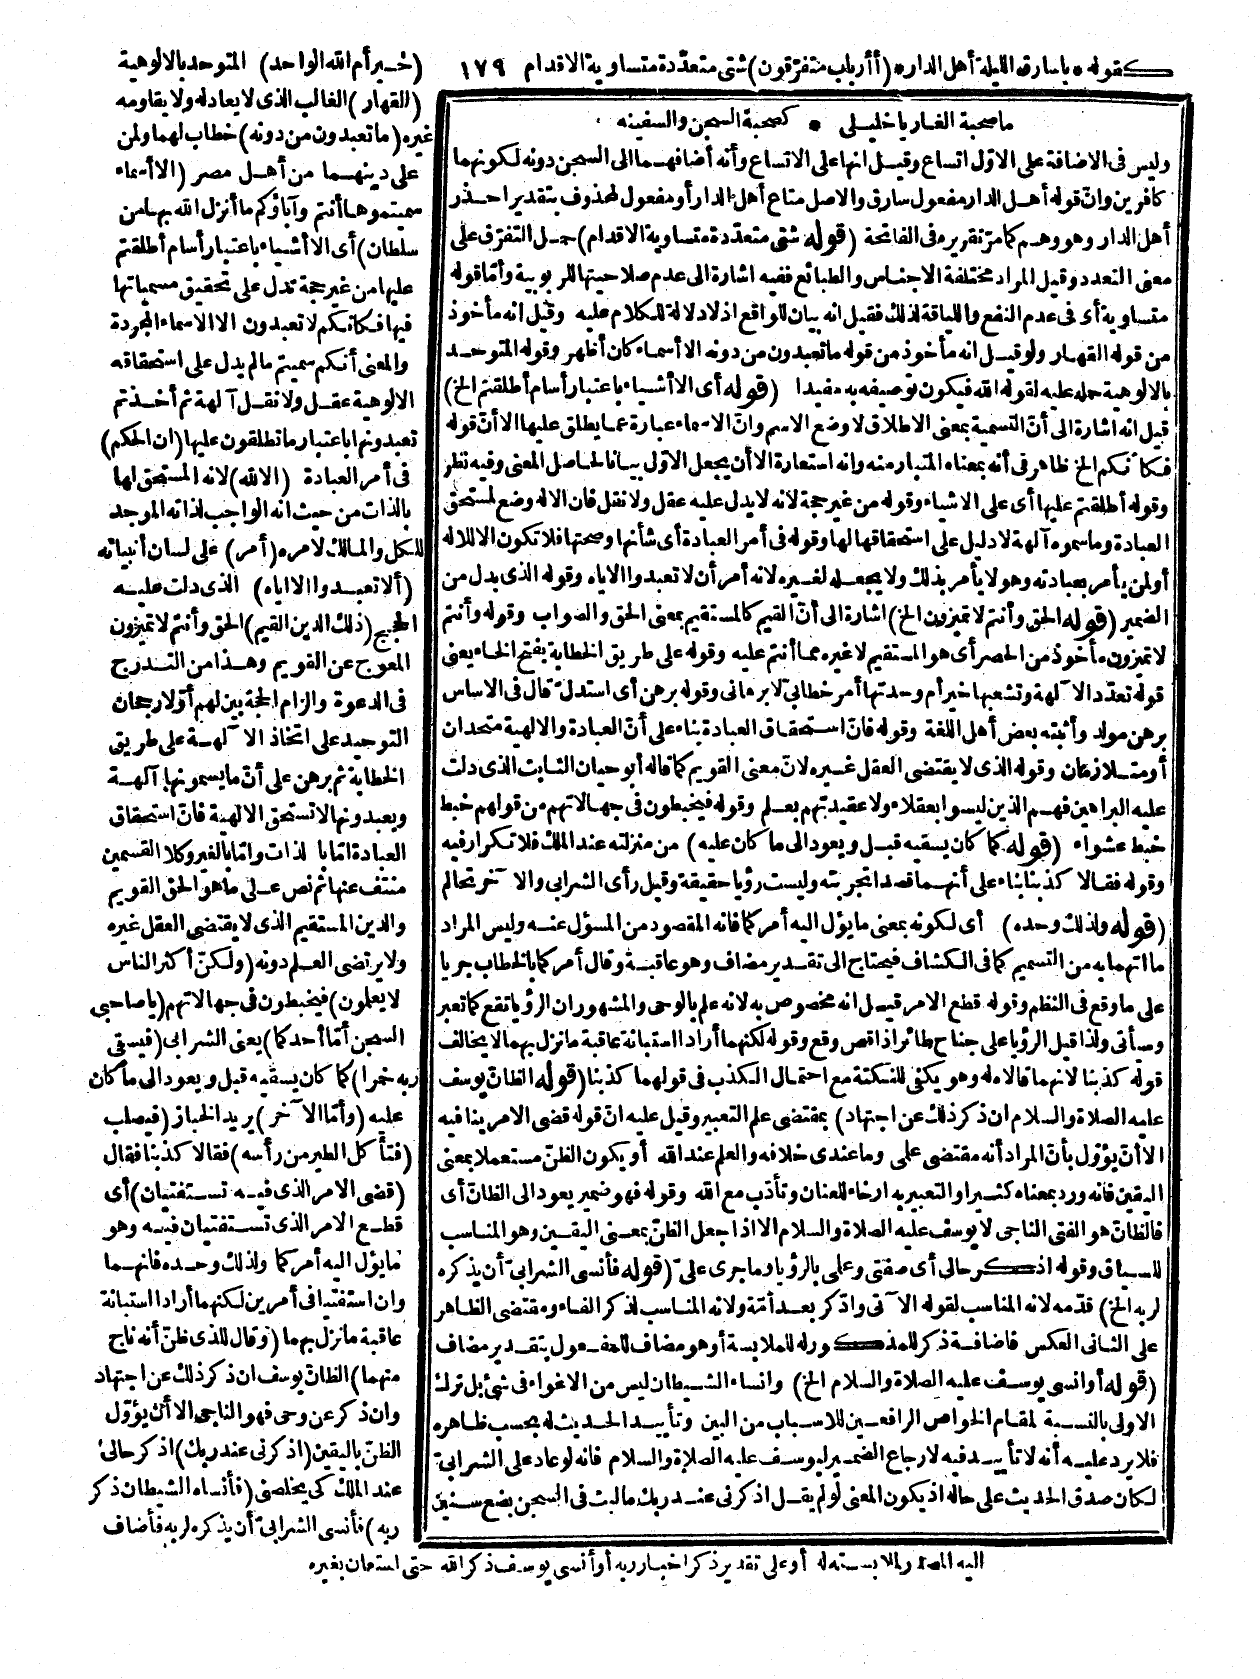 كقوله * يا سارق الليلة أهل الدار * (أأرباب متفرّقون) شتى متعدّدة متساوية الاقدام ١٧٩
(خير أم الله الواحد) المتوحد بالالوهية
(القهار) الغالب الذى لا يعادله ولا يقاومه
غيره (ما تعبدون من دونه) خطاب لهما ولمن
على دينهما من أهل مصر (الا أسماء
سميتموها أنتم وآباؤكم ما أنزل الله بها من
سلطان) أى الا أشياء باعتبار أسام أطلقتم
عليها من غير حجة تدل على تحقيق مسمياتها
فيها فكانكم لا تعبدون الا الاسماء المجردة
والمعنى أنكم سميتم ما لم يدل على استحقاقه
الالوهية عقل ولا نقل آلهة ثم أخذتم
تعبدونها باعتبار ما تطلقون عليها (ان الحكم)
فى أمر العبادة (الا لله) لانه المستحق لها
بالذات من حيث انه الواجب لذاته الموجد
للكل والمالك لامره (أمر) على لسان أنبيائه
(ألا تعبدوا الا اياه) الذى دلت عليه
الحجج (ذلك الدين القيم) الحق وأنتم لا تميزون
المعوج عن القويم وهذا من التدرج
فى الدعوة والزام الحجة بين لهم أوّلا رجحان
التوحيد على اتخاذ الآلهة على طريق
الخطابة ثم برهن على أنّ ما يسمونها آلهة
ويعبدونها لا تستحق الالهية فانّ استحقاق
العبادة امّا بالذات وامّا بالغير وكلا القسمين
منتف عنها ثم نص على ما هو الحق القويم
والدين المستقيم الذى لا يقتضى العقل غيره
ولا يرتضى العلم دونه (ولكنّ أكثر الناس
لا يعلمون) فيخبطون فى جهالاتهم (يا صاحبى
السجن أمّا أحدكما) يعنى الشرابى (فيسقى
ربه خمرا) كما كان يسقيه قبل ويعود الى ما كان
عليه (وأمّا الآخر) يريد الخباز (فيصلب
فتأكل الطير من رأسه) فقالا كذبنا فقال
(قضى الامر الذى فيه تستفتيان) أى
قطع الامر الذى تستفتيان فيه وهو
ما يؤل اليه أمركما ولذلك وحده فانهما
وان استفتيا فى أمرين لكنهما أرادا استبانة
عاقبة ما نزل بهما (وقال للذى ظنّ أنه ناج
منهما) الظانّ يوسف ان ذكر ذلك عن اجتهاد
وان ذكر عن وحى فهو الناجى الا أن يؤوّل
الظنّ باليقين (اذكرنى عند ربك) اذكر حالى
عند الملك كى يخلصنى (فأنساه الشيطان ذكر
ربه) فأنسى الشرابىّ أن يذكره لربه فأضاف
اليه المصدر لملابسته له أو على تقدير ذكر اخبار ربه أو أنسى يوسف ذكر الله حتى استعان بغيره
ما صحبة الغار يا خليلى * كصحبة السجن والسفينه
وليس فى الاضافة على الاوّل اتساع وقيل انها على الاتساع وأنه أضافهما الى السجن دونه لكونهما
كافرين وانّ قوله أهل الدار مفعول سارق والاصل متاع أهل الدار أو مفعول لمحذوف بتقدير احذر
أهل الدار وهو وهم كما مرّ تقريره فى الفاتحة (قوله شتى متعدّدة متساوية الاقدام) حمل التفرّق على
معنى التعدد وقيل المراد مختلفة الاجناس والطبائع ففيه اشارة الى عدم صلاحيتها للربوبية وأمّا قوله
متساوية أى فى عدم النفع واللياقة لذلك فقيل انه بيان للواقع اذ لا دلالة للكلام عليه وقيل انه مأخوذ
من قوله القهار ولو قيل انه مأخوذ من قوله ما تعبدون من دونه الا أسماء كان أظهر وقوله المتوحد
بالالوهية حمله عليه لقوله الله فيكون توصيفه به مفيدا (قوله أى الا أشياء باعتبار أسام أطلقتم الخ)
قيل انه اشارة الى أنّ التسمية بمعنى الاطلاق لا وضع الاسم وانّ الاسماء عبارة عما يطلق عليها الا أنّ قوله
فكأنكم الخ ظاهر فى أنه بمعناه المتبادر منه وانه استعارة الا أن يجعل الاوّل بيانا لحاصل المعنى وفيه نظر
وقوله أطلقتم عليها أى على الاشياء وقوله من غير حجة لانه لا يدل عليه عقل ولا نقل فان الاله وضع لمستحق
العبادة وما سموه آلهة لا دليل على استحقاقها لها وقوله فى أمر العبادة أى شأنها وصحتها فلا تكون الا للاله
أو لمن يأمر بعبادته وهو لا يأمر بذلك ولا يجعله لغيره لانه أمر أن لا تعبدوا الا اياه وقوله الذى بدل من
الضمير (قوله الحق وأنتم لا تميزون الخ) اشارة الى أنّ القيم كالمستقيم بمعنى الحق والصواب وقوله وأنتم
لا تميزون مأخوذ من الحصر أى هو المستقيم لا غيره مما أنتم عليه وقوله على طريق الخطابة بفتح الخاء يعنى
قوله تعدّد الآلهة وتشعبها خير أم وحدتها أمر خطابىّ لا برهانى وقوله برهن أى استدلّ قال فى الاساس
برهن مولد وأثبته بعض أهل اللغة وقوله فانّ استحقاق العبادة بناء على أنّ العبادة والالهية متحدان
أو متلازمان وقوله الذى لا يقتضى العقل غيره لانّ معنى القويم كما قاله أبو حيان الثابت الذى دلت
عليه البراهين فهم الذين ليسوا بعقلاء ولا عقيدتهم بعلم وقوله فيخبطون فى جهالاتهم من قولهم خبط
خبط عشواء (قوله كما كان يسقيه قبل ويعود الى ما كان عليه) من منزلته عند الملك فلا تكرار فيه
وقوله فقالا كذبنا بناء على أنهما قصدا تجربته وليست رؤيا حقيقة وقيل رأى الشرابى والآخر تحالم
(قوله ولذلك وحده) أى لكونه بمعنى ما يؤل اليه أمركما فانه المقصود من المسؤل عنه وليس المراد
ما اتهما به من التسميم كما فى الكشاف فيحتاج الى تقدير مضاف وهو عاقبة وقال أمركما بالخطاب جريا
على ما وقع فى النظم وقوله قطع الامر قيل انه مخصوص به لانه علم بالوحى والمشهور ان الرؤيا تقع كما تعبر
وسأتى ولذا قيل الرؤيا على جناح طائر اذا قص وقع وقوله لكنهما أرادا استبانة عاقبة ما نزل بهما لا يخالف
قوله كذبنا لانهما قالا له وهو يكنى للنكتة مع احتمال الكذب فى قولهما كذبنا (قوله الظانّ يوسف
عليه الصلاة والسلام ان ذكر ذلك عن اجتهاد) بمقتضى علم التعبير وقيل عليه انّ قوله قضى الامر ينافيه
الا أن يؤوّل بأنّ المراد أنه مقتضى علمى وما عندى خلافه والعلم عند الله أو يكون الظنّ مستعملا بمعنى
اليقين فانه ورد بمعناه كثيرا والتعبير به ارخاء للعنان وتأدّب مع الله وقوله فهو ضمير يعود الى الظانّ أى
فالظانّ هو الفتى الناجى لا يوسف عليه الصلاة والسلام الا اذا جعل الظنّ بمعنى اليقين وهو المناسب
للسياق وقوله اذكر حالى أى صفتى وعلمى بالرؤيا وما جرى علىّ (قوله فأنسى الشرابىّ أن يذكره
لربه الخ) قدّمه لانه المناسب لقوله الآتى واذكر بعد أمّة ولانه المناسب لذكر الفاء ومقتضى الظاهر
على الثانى العكس فاضافة ذكر للمذكور له للملابسة أو هو مضاف للمفعول بتقدير مضاف
(قوله أو أنسى يوسف عليه الصلاة والسلام الخ) وانساء الشيطان ليس من الاغواء فى شئ بل ترك
الاولى بالنسبة لمقام الخواص الرافعين للاسباب من البين وتأييد الحديث له بحسب ظاهره
فلا يرد عليه أنه لا تأييد فيه لارجاع الضمير ليوسف عليه الصلاة والسلام فانه لو عاد على الشرابىّ
لكان صدق الحديث على حاله اذ يكون المعنى لو لم يقل اذكرنى عند ربك ما لبث فى السجن بضع سنين